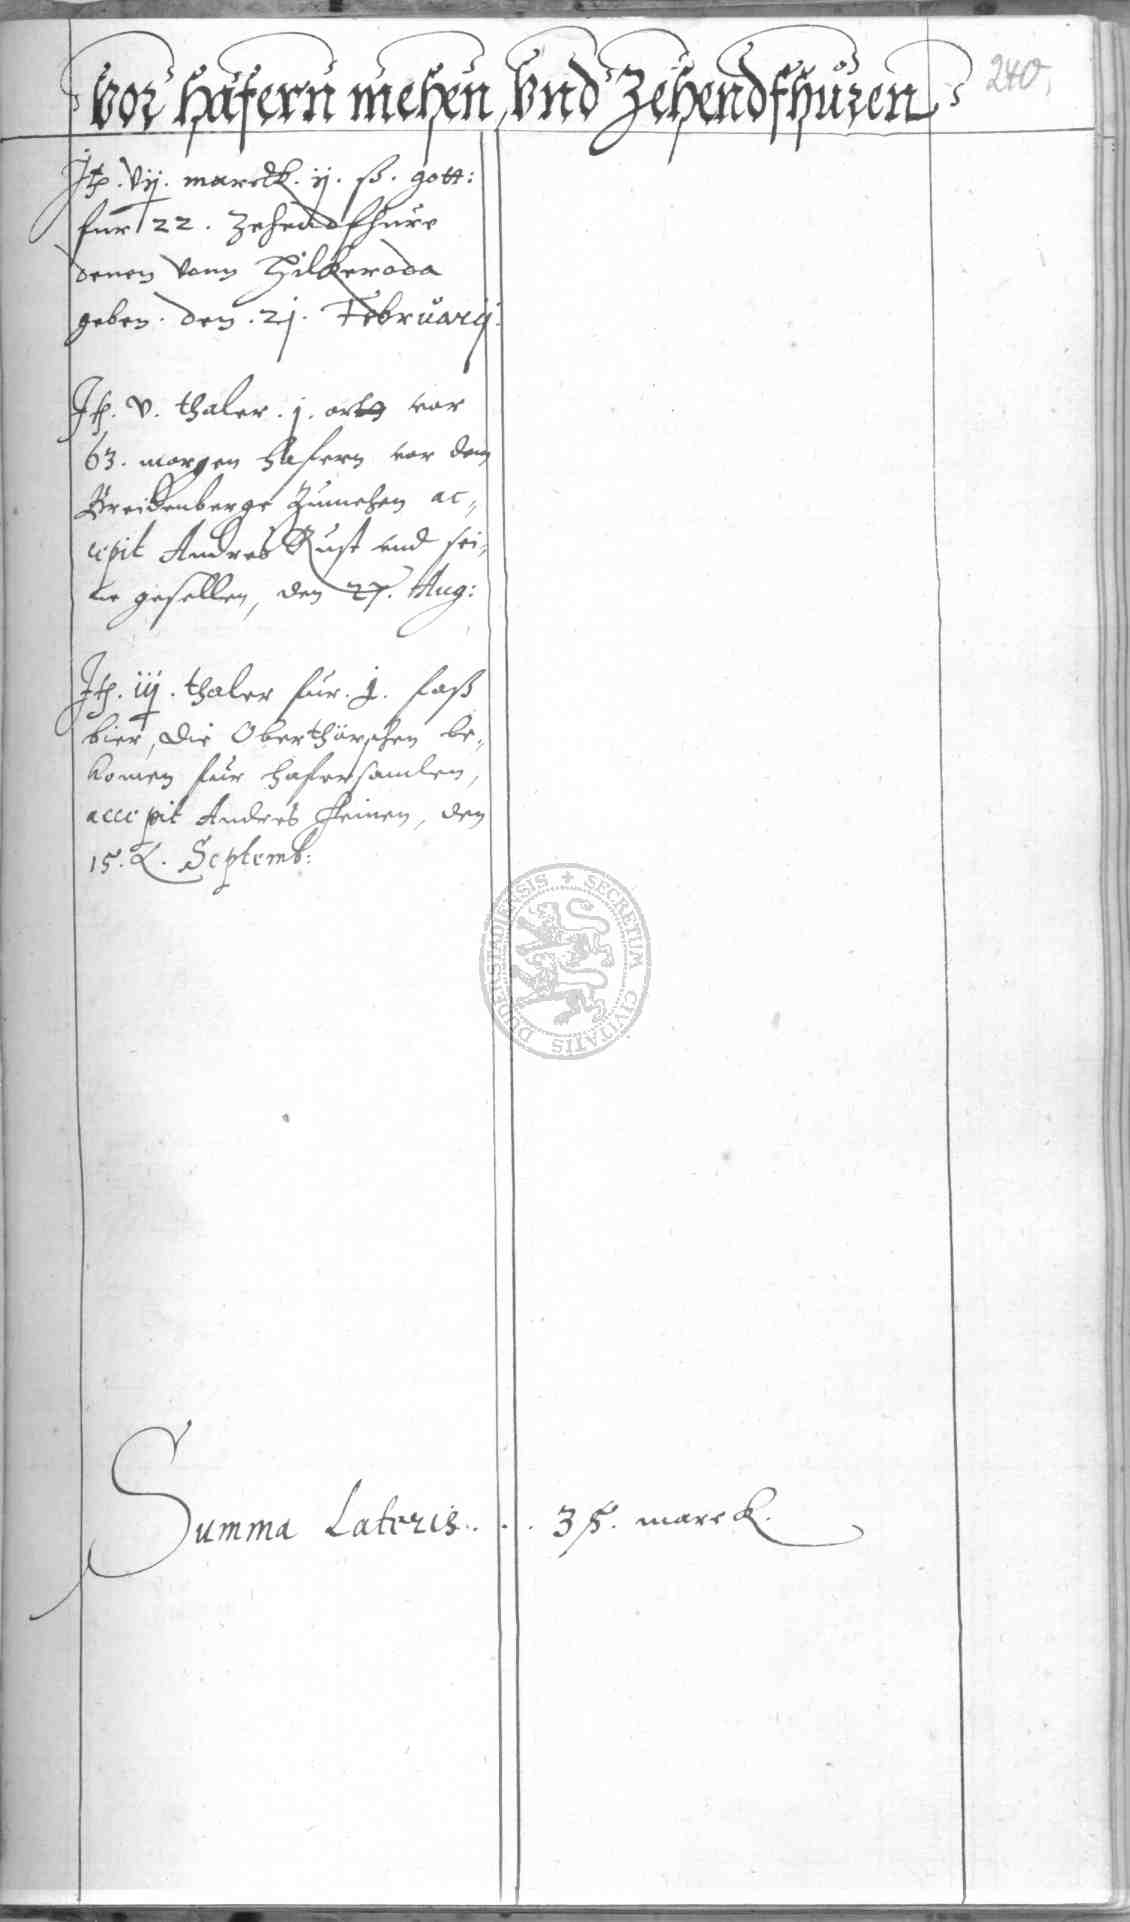 Vor hafern mehen, Vnd Zehendfhuren
240.
Itp. vij. marck. ij. ß. gott:
fur 22. Zehendfhure
denen vonn Hilkeroda
geben. den. 21. Februarij.
Itp. v. thaler. j. ortt vor
63. morgen hafern vor dem
Breidenberge zumehen ac„
cipit Andres Rust vnd sei„
ne gesellen, den 27. Aug:
Itp. iij. thaler fur. j. faß
bier, die Oberthörschen be„
komen fur hafersamlen,
accipit Andres Heinen, den
15. Septemb:
DUDERSTADIENSIS + SECRETUM CIVITATIS
Summa Lateris . . . 35. marck.